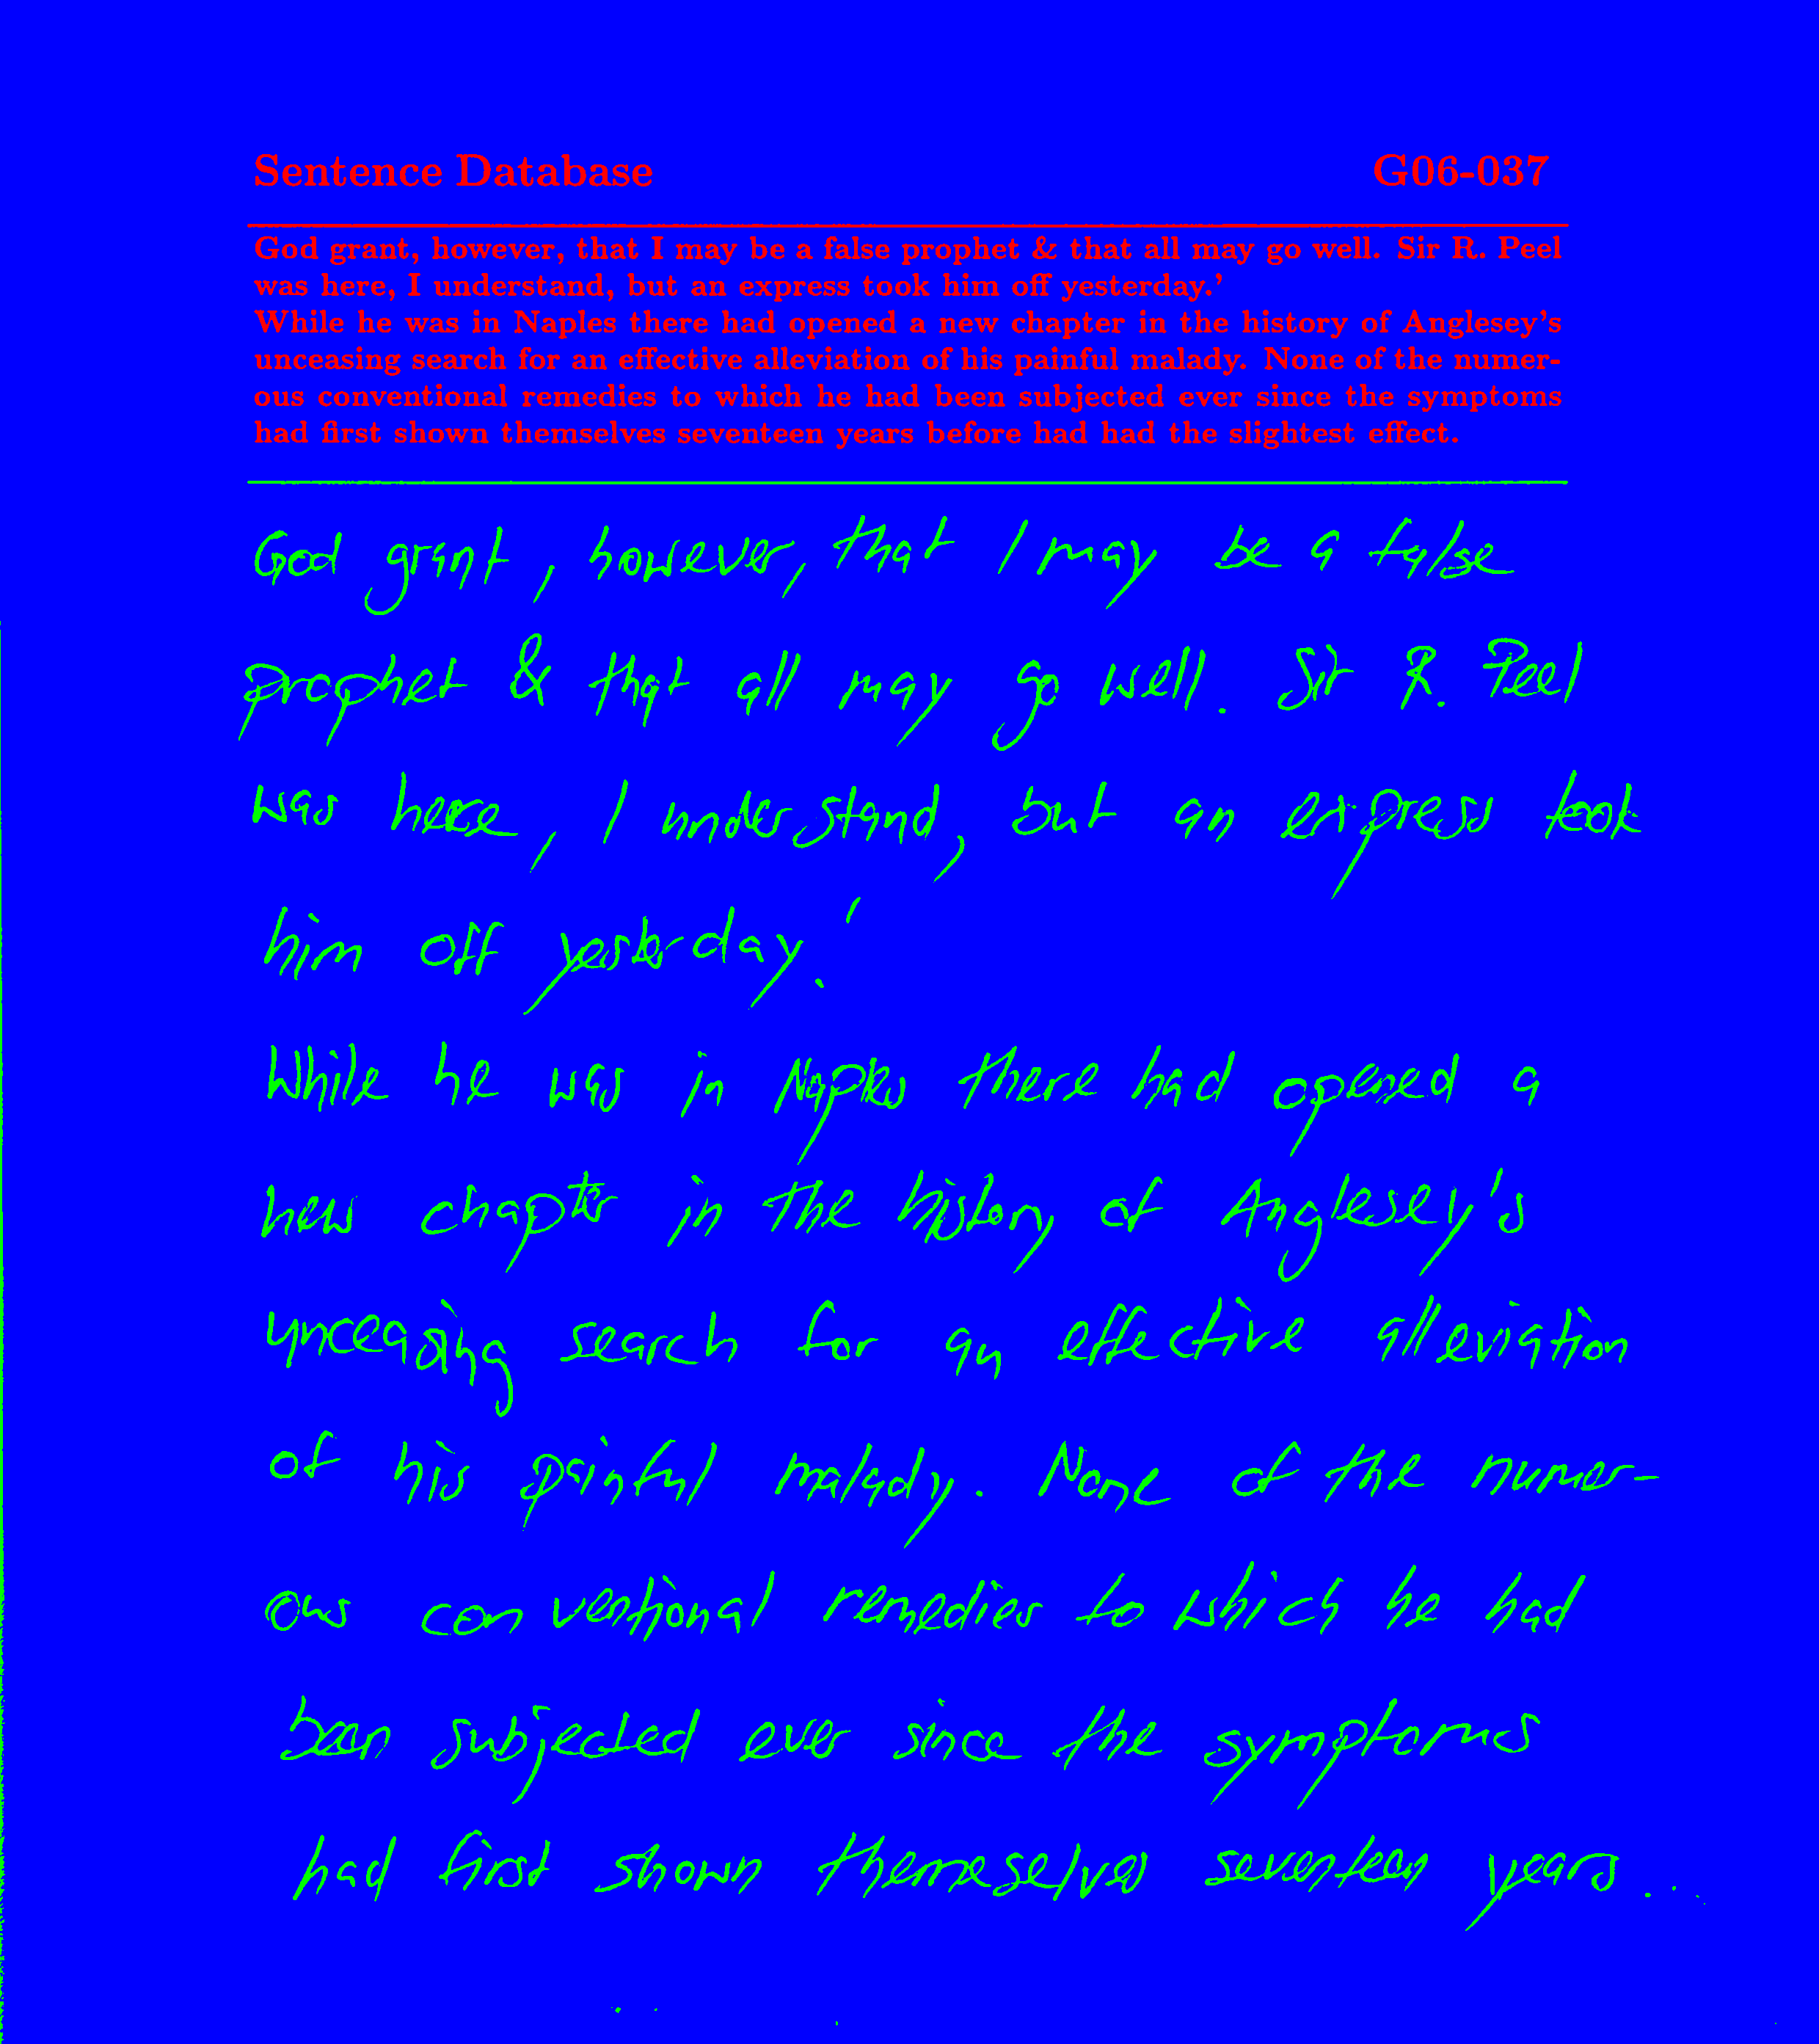 Sentence Database G06-037
God grant, however, that I may be a false prophet & that all may go well. Sir R. Peel
was here, I understand, but an express took him off yesterday.'
While he was in Naples there had opened a new chapter in the history of Anglesey's
unceasing search for an effective alleviation of his painful malady. None of the numer-
ous conventional remedies to which he had been subjected ever since the symptoms
had first shown themselves seventeen years before had had the slightest effect.
God grant, however, that I may be a false
prophet & that all may go well. Sir R. Peel
was here, I understand, but an express took
him off yesterday.'
While he was in Naples there had opened a
new chapter in the history of Anglesey's
unceasing search for an effective alleviation
of his painful malady. None of the numer-
ous conventional remedies to which he had
been subjected ever since the symptoms
had first shown themeselves seventeen years...